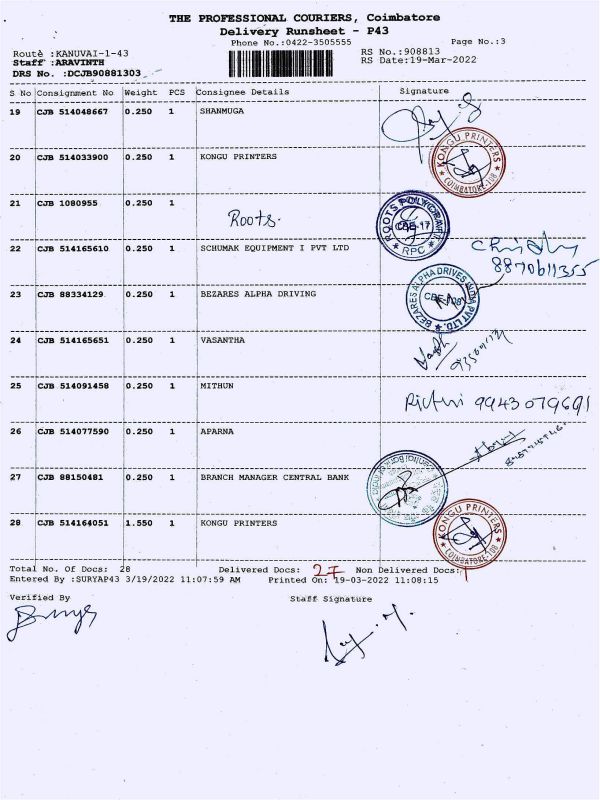 THE PROFESSIONAL COURIERS, Coimbatore
Delivery Runsheet - P43
Phone No.:0422-3505555 Page No.:3
Route :KANUVAI-1-43 RS No.:908813
Staff :ARAVINTH RS Date:19-Mar-2022
DRS No. :DCJB90881303
S No Consignment No Weight PCS Consignee Details Signature
19 CJB 514048667 0.250 1 SHANMUGA
20 CJB 514033900 0.250 1 KONGU PRINTERS
KONGU PRINTERS
COIMBATORE-108
21 CJB 1080955 0.250 1 Roots.
CBE-17
RPC
22 CJB 514165610 0.250 1 SCHUMAK EQUIPMENT I PVT LTD
8870611355
23 CJB 88334129 0.250 1 BEZARES ALPHA DRIVING
24 CJB 514165651 0.250 1 VASANTHA
25 CJB 514091458 0.250 1 MITHUN
9943079691
26 CJB 514077590 0.250 1 APARNA
27 CJB 88150481 0.250 1 BRANCH MANAGER CENTRAL BANK
28 CJB 514164051 1.550 1 KONGU PRINTERS
KONGU PRINTERS
COIMBATORE-108
Total No. Of Docs: 28 Delivered Docs: 27 Non Delivered Docs: 1
Entered By :SURYAP43 3/19/2022 11:07:59 AM Printed On: 19-03-2022 11:08:15
Verified By Staff Signature